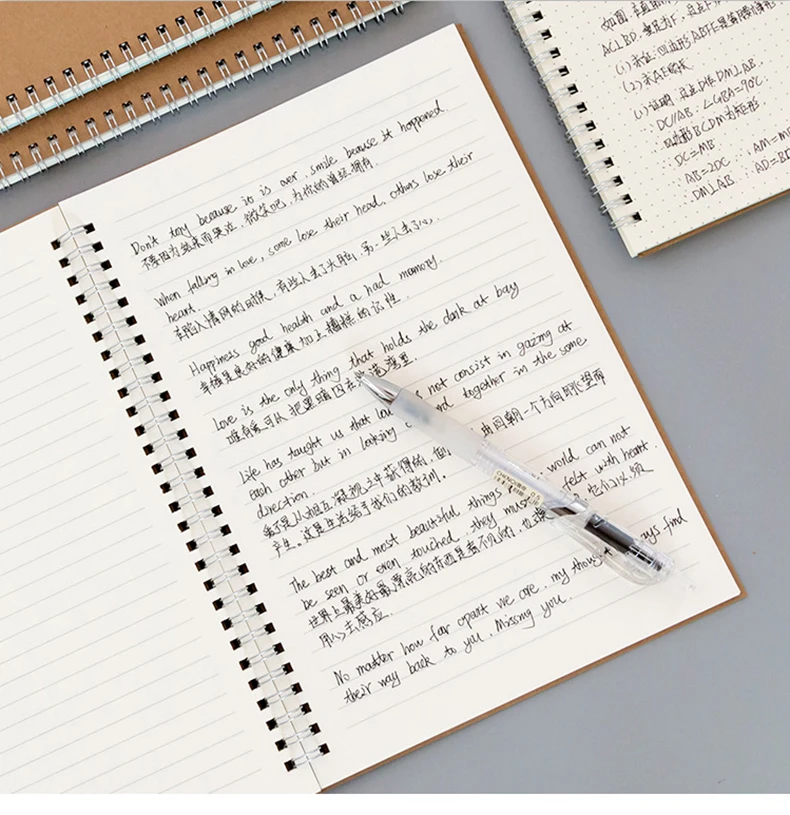 Don't cry because it is over, smile because it happened.
不要因为结束而哭泣，微笑吧，为你的曾经拥有.
When falling in love, some lose their head, others lose their
heart.
在陷入情网的时候，有些人丢了头脑，另一些人丢了心.
Happiness good health and a bad memory.
幸福是良好的健康加上糟糕的记性.
Love is the only thing that holds the dark at bay
唯有爱可以把黑暗囚在港湾里.
Life has taught us that lov not consist in gazing at
each other but in looking together in the same
direction.
爱不是从相互凝视之中获得的, 由同朝一个方向眺望而
产生. 这是生活给予我们的教训.
The best and most beautiful things world can not
be seen or even touched, they mus felt with heart.
世界上最美好最漂亮的东西是看不见的, 它们必须
用心去感应.
No matter how far apart we are, my thought ays find
their way back to you. Missing you.
CHENQI
0.5
如图,
AC⊥BD,
(1) 求证: 四边形ABFE是
(2) 求AE的长
(1) 证明: DM⊥AB.
∵DC//AB, ∠CBA=90°.
∴四边形BCDM为矩形
∴DC=MB
∵AB=2DC
∴DM⊥AB
∴AD=BD